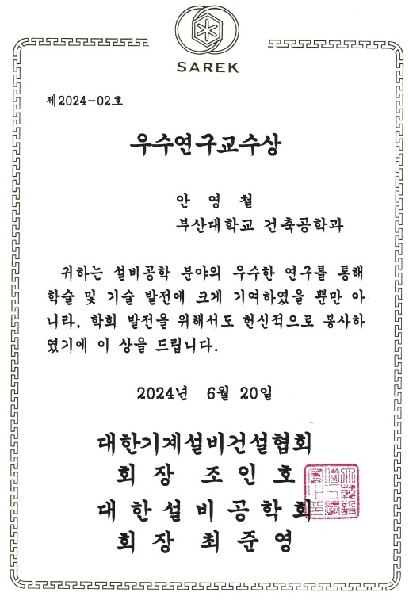 SAREK
제2024-02호
우수연구교수상
안 영 철
부산대학교 건축공학과
귀하는 설비공학 분야의 우수한 연구를 통해
학술 및 기술 발전에 크게 기여하였을 뿐만 아
니라, 학회 발전을 위해서도 헌신적으로 봉사하
였기에 이 상을 드립니다.
2024년 6월 20일
대한기계설비건설협회
회 장 조 인 호
대 한 설 비 공 학 회
회 장 최 준 영